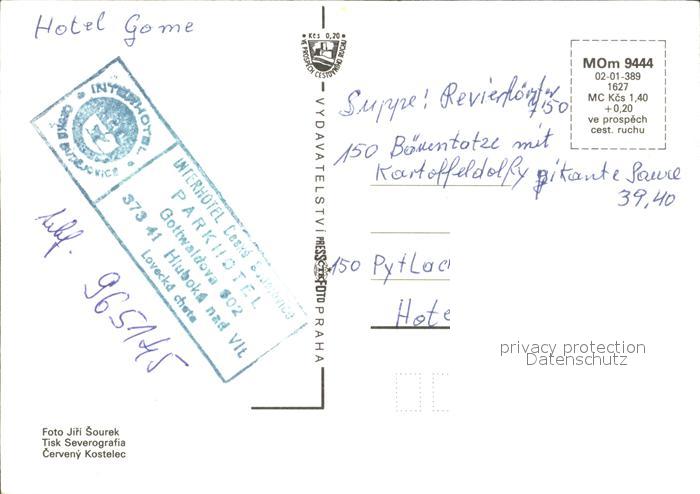 Hotel Gome
Kčs 0,20
VE PROSPĚCH CESTOVNÍHO RUCHU
MOm 9444
02-01-389
1627
MC Kčs 1,40
+0,20
ve prospěch
cest. ruchu
Suppe!
7,50
150 Bärentatze mit
pikante
39,40
150 Pytlac
Hote
INTERHOTEL
ČESKÉ BUDĚJOVICE
INTERHOTEL České Budějovice
PARKHOTEL
Gottwaldova 602
373 41 Hluboká nad Vlt
Lovecká chata
965145
VYDAVATELSTVÍ PRESSFOTO PRAHA
privacy protection
Datenschutz
Foto Jiří Šourek
Tisk Severografia
Červený Kostelec